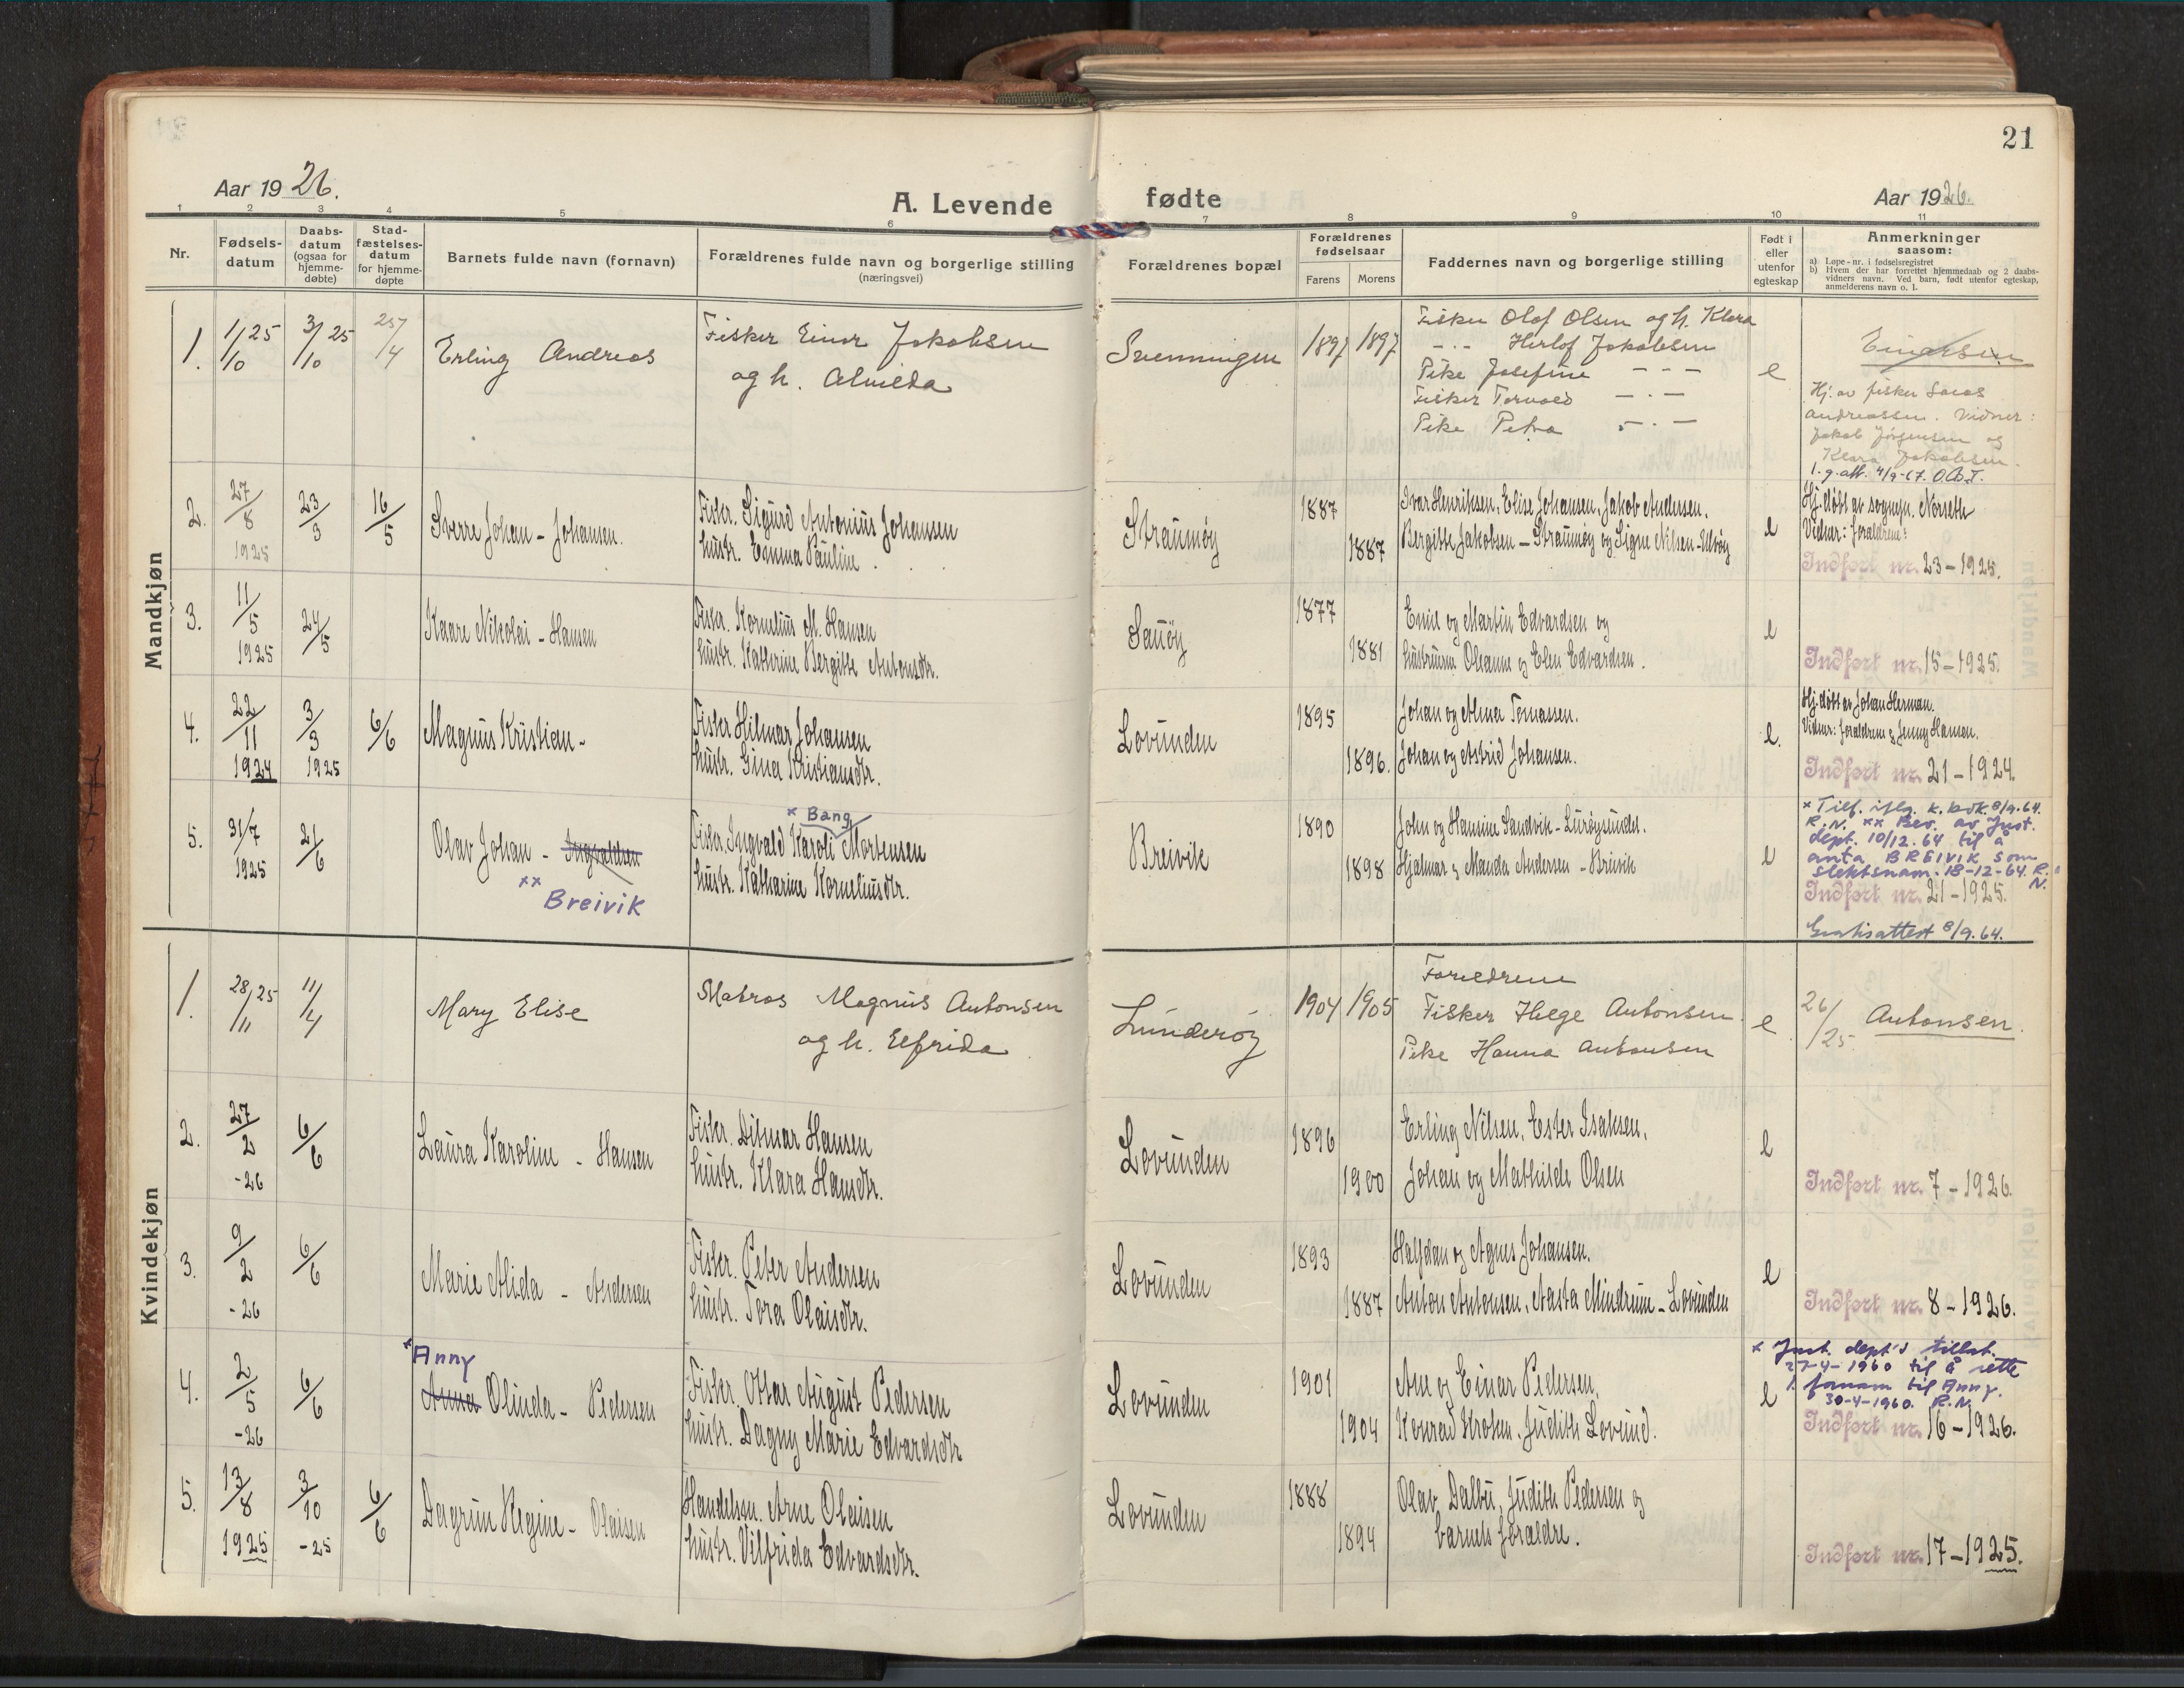 21
Aar 1926.
A. Levende
fødte
Aar 1926.
1 2 3 4 5 6 7 8 9 10 11
Nr.
Fødsels-
datum
Daabs-
datum
(ogsaa for
hjemme-
døbte)
Stad-
fæstelses-
datum
for hjemme-
døpte
Barnets fulde navn (fornavn)
Forældrenes fulde navn og borgerlige stilling
(næringsvei)
Forældrenes bopæl
Forældrenes
fødselsaar
Farens Morens
Faddernes navn og borgerlige stilling
Født i
eller
utenfor
egteskap
Anmerkninger
saasom:
a) Løpe-nr. i fødselsregistret
b) Hvem der har forrettet hjemmedaab og 2 daabs-
vidners navn. Ved barn, født utenfor egteskap,
anmelderens navn o. l.
Mandkjøn
1.
1/10 25
3/10 25
25/4
Erling Andreas
Fisker Einar Jakobsen
og h. Almeda
Svenningen
1897 1897
Fisker Olof Olsen og h. Klara
- . - Herlof Jakobsen
Pike Josefine - - -
Fisker Torvald - . -
Pike Petra - . -
e
Einarsen
Hj. av fisker
Andreassen. Vidner:
Jakob Jörgensen og
Klara Jakobsen.
1. g. att. 4/9-67. O.B.T.
2.
27/8
1925
23/3
16/5
Sverre Johan - Johansen.
Fiskr. Sigurd Antonius Johansen
hustr. Emma Pauline.
Straumøy
1887
1887
Ivar Henriksen, Elise Johansen, Jakob Andersen,
Bergitte Jakobsen - Straumøy og Signe Nilsen - Ulvøy
e
Hj. døbt av sogнepr. Norseth
Vidner: forældrene:
Indført nr. 23-1925.
3.
11/5
1925
24/5
Kaare Nikolai - Hansen
Fiskr. Kornelius M. Hansen
hustr. Kathrine Bergitte Antonsdtr.
Sauøy
1877
1881
Emil og Martin Edvardsen og
hustruerne Oleanne og Elen Edvardsen.
e
Indført nr. 15-1925.
4.
22/11
1924
3/3
1925
6/6
Magnus Kristian -
Fisker Hilmar Johansen
hustr. Gina Kristiansdtr.
Lovunden
1895
1896.
Johan og Alma Tomassen.
Johan og Astrid Johansen.
e.
Hj. døbt av Johan Herman.
Vidner: forældrene og Jenny Hansen.
Indført nr. 21-1924.
5.
31/7
1925
2/6
Olav Johan - Ingvaldsen
xx
Breivik
x Bang
Fiskr. Ingvald Karoli Mortensen
hustr. Katharine Korneliusdtr.
Breivik
1890
1898
John og Hansine Sandvik - Lurøysundet.
Hjalmar og Manda Andersen - Breivik
e
x Tilf. iflg. k. bok 8/9.64.
R.N. xx Bev. av Just.
dept. 10/12.64 til å
anta BREIVIK som
slektsnam. 18-12-64. R.
N.
Indført nr. 21-1925.
Gratisattest 8/9.64.
Kvindekjøn
1.
28/11 25
11/4
Mary Elise
Matros Magnus Antonsen
og h. Elfrida
Lunderöy
1904 1905
Foreldrene
Fisker Helge Antonsen
Pike Hanna Antonsen
e
26/25
Antonsen.
2.
27/2
-26
6/6
Laura Karoline - Hansen
Fiskr. Ditmar Hansen
hustr. Klara Hansdtr.
Lovunden
1896
1900
Erling Nilsen, Ester Isaksen,
Johan og Mathilde Olsen
e
Indført nr. 7-1926.
3.
9/2
-26
6/6
Marie Alida - Andersen
Fiskr. Peter Andersen
hustr. Tora Olaisdtr.
Lovunden
1893
1887
Halfdan og Agnes Johansen.
Anton Antonsen, Aasta Mindrum - Lovunden
e
Indført nr. 8-1926.
4.
2/5
-26
6/6
x Anny
Anna Olinda - Pedersen
Fiskr. Ottar August Pedersen
hustr. Dagny Marie Edvardsdtr
Lovunden
1901
1904
Arne og Einar Pedersen,
Konrad Kroken, Judith Lovund.
e
x Just. dept's tillat.
27-4-1960 til å rette
1. fornavn til Anny.
30-4-1960. R.N.
Indført nr. 16-1926.
5.
13/8
1925
3/10
-25
6/6
Dagrun Regine - Olaisen
Handelsm. Arne Olaisen
hustr. Vilfrida Edvardsdtr.
Lovunden
1888
1894
Olav Dalbu, Judith Pedersen og
barnets forældre.
Indført nr. 17-1925.